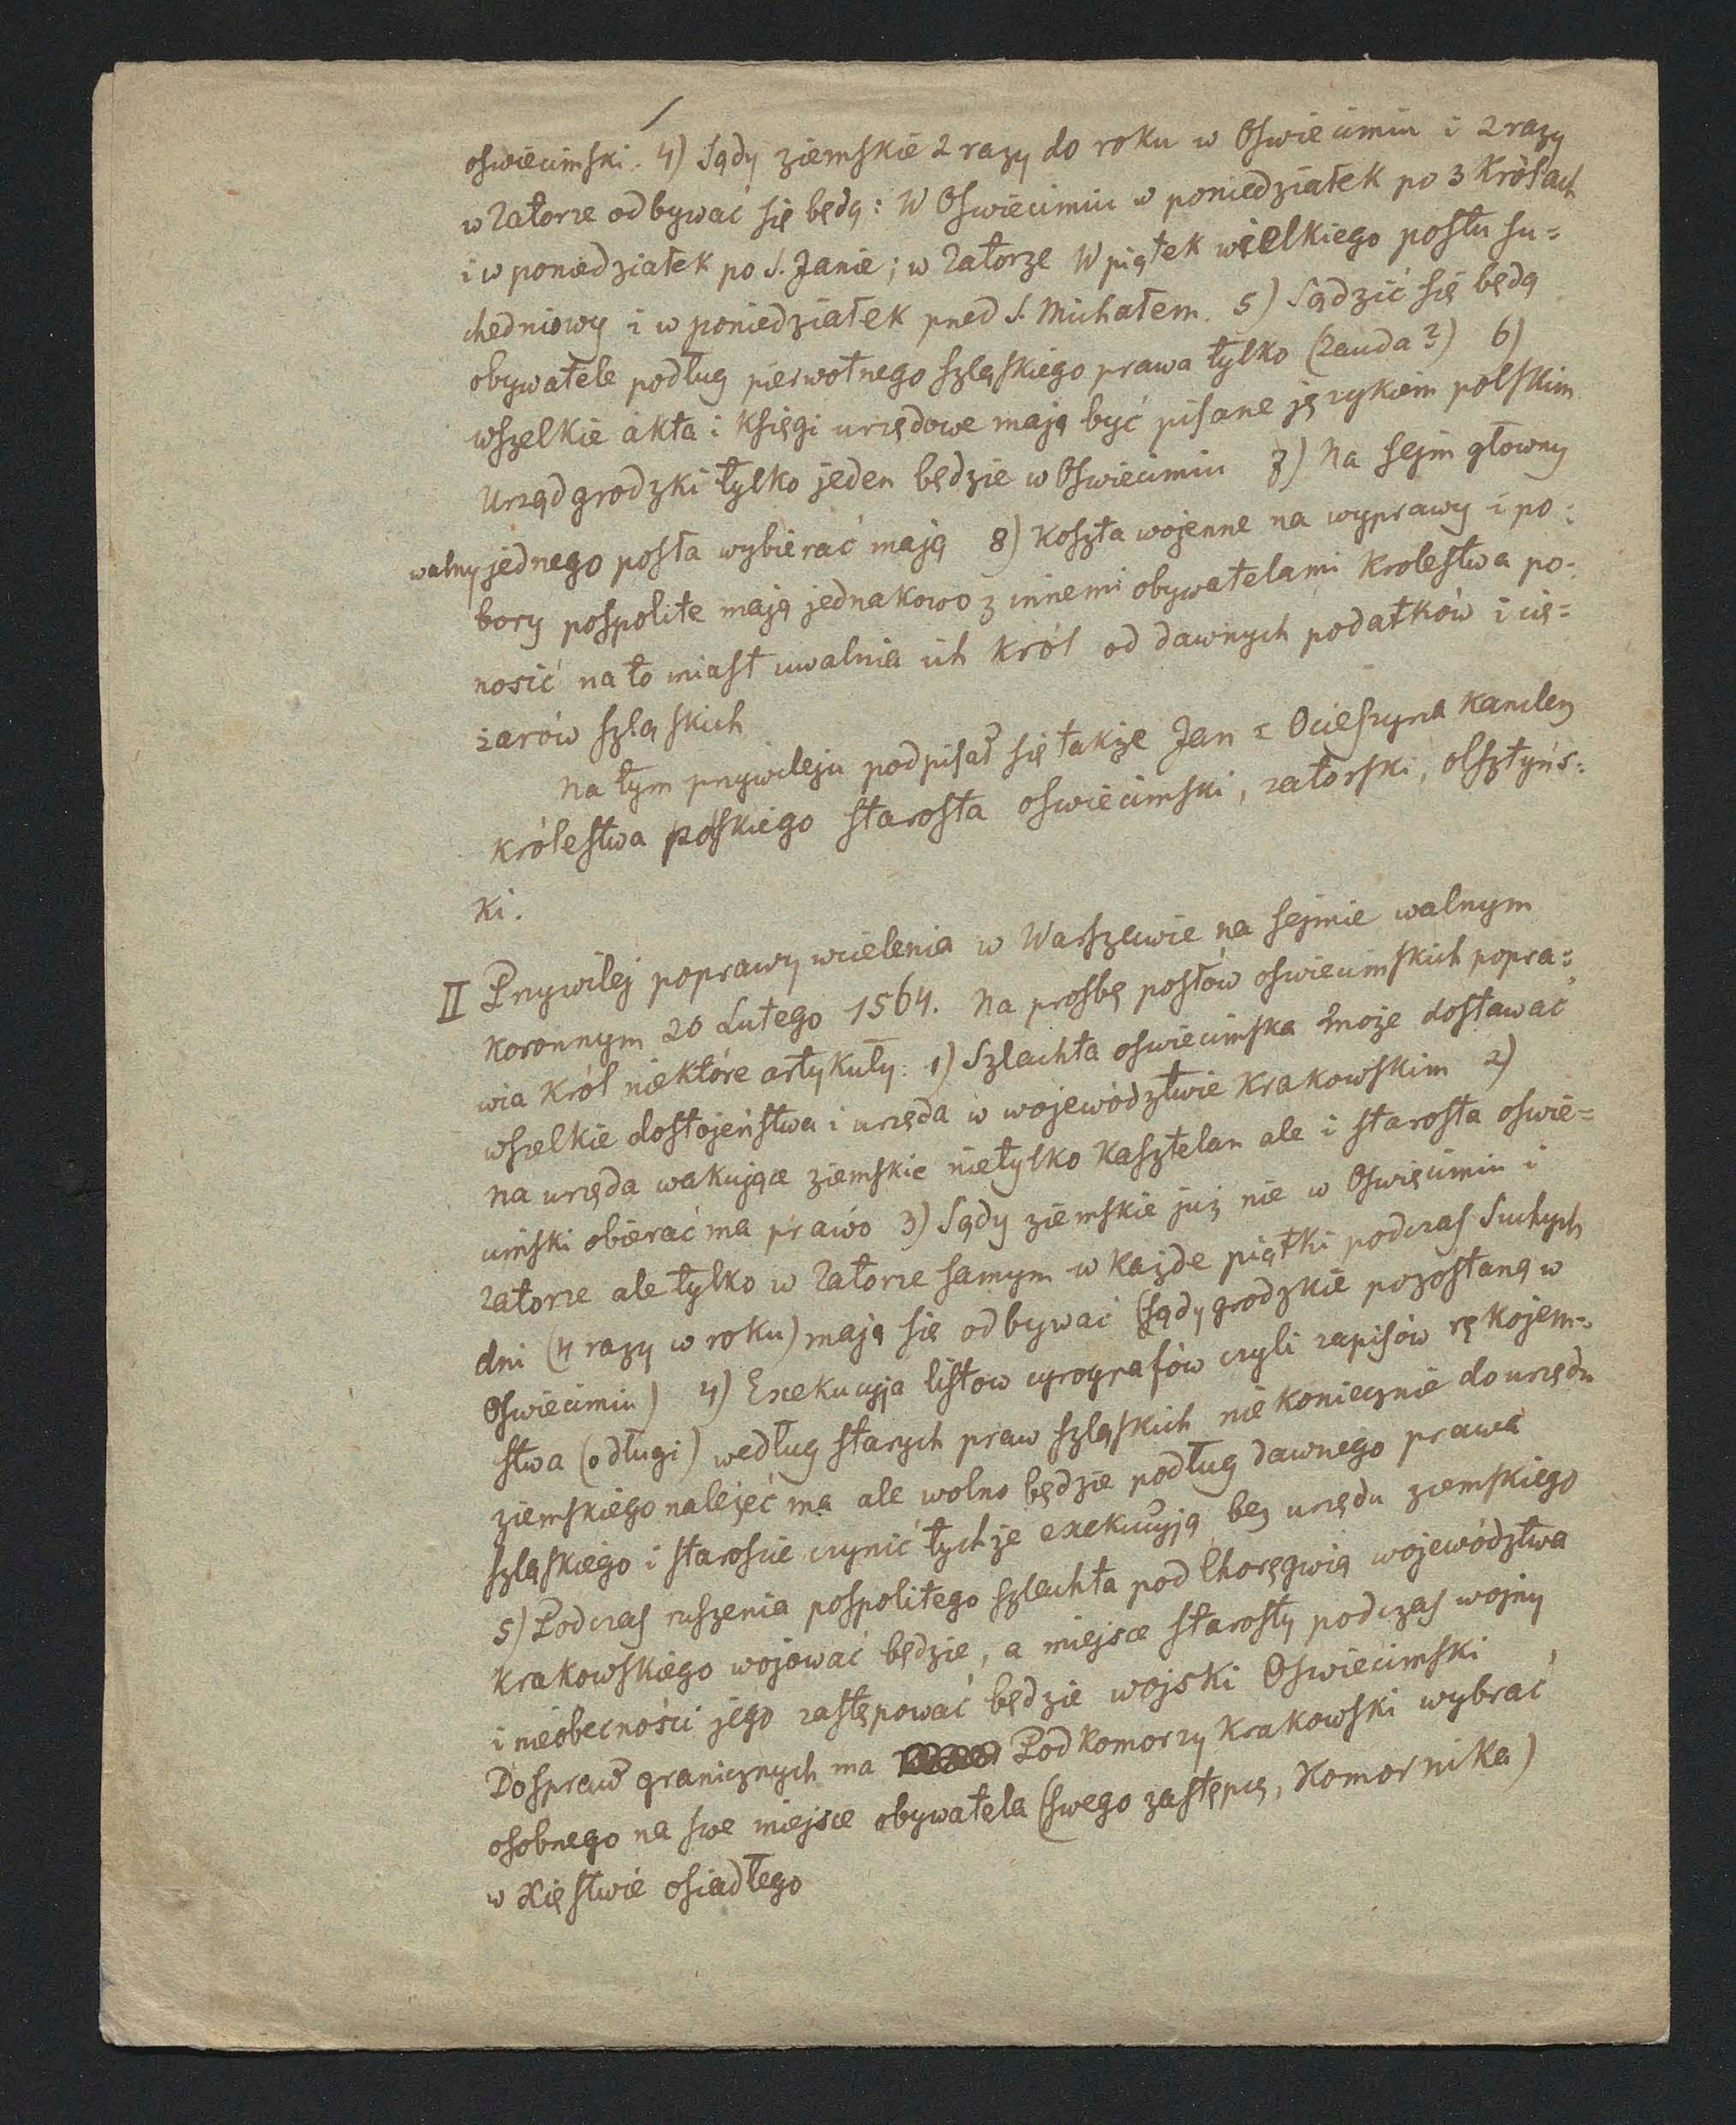 oswiecimski. 4) Sądy ziemskie 2 razy do roku w Oswiecimiu i 2 razy
w Zatorze odbywać się będą: W Oswiecimiu w poniedziałek po 3 Królach
i w poniedziałek po S. Janie; w Zatorze W piątek wielkiego postu su=
chedniowy i w poniedziałek przed S. Michałem. 5) Sądzić się będą
obywatele podług pierwotnego szląskiego prawa tylko (Zauda?) 6)
wszelkie akta i Księgi urzędowe mają być pisane językiem polskim
Urząd grodzki tylko jeden będzie w Oswiecimiu 7) Na sejm głowny
walny jednego posła wybierać mają 8) Koszta wojenne na wyprawy i po=
bory pospolite mają jednakowo z innemi obywatelami Krolestwa po=
nosić na to miast uwalnia ich Król od dawnych podatków i cię=
żarów szląskich
Na tym przywileju podpisał się także Jan z Ocieszyna Kanclerz
Królestwa polskiego starosta oswiecimski, zatorski, olsztyńs=
ki.
II Przywilej poprawy wcielenia w Warszawie na sejmie walnym
koronnym 20 Lutego 1564. Na prosbę posłów oswiecimskich popra=
wia Król niektóre artykuły: 1) Szlachta oswiecimska może dostawać
wszelkie dostojeństwa i urzęda w województwie Krakowskim 2)
na urzęda wakujące ziemskie nietylko Kasztelan ale i starosta oswie=
cimski obierać ma prawo 3) Sądy ziemskie już nie w Oswięcimiu i
Zatorze ale tylko w Zatorze samym w Każde piątki podczas Suchych
dni (4 razy w roku) mają się odbywać (sądy grodzkie pozostaną w
Oswiecimiu) 4) Exekucyja listow cyrografów czyli zapisów rękojem=
stwa (o długi) według starych praw szląskich nie koniecznie do urzędu
ziemskiego należeć ma ale wolno będzie podług dawnego prawa
szląskiego i staroscie czynić tychże exekucyją bez urzędu ziemskiego
5) Podczas ruszenia pospolitego szlachta pod Choręgwią województwa
Krakowskiego wojować będzie, a miejsce starosty podczas wojny
i nieobecności jego zastępować będzie wojski Oswiecimski
Do spraw granicznych ma Podkomorzy Krakowski wybrać
osobnego na swe miejsce obywatela (swego zastępcę, Komornika)
w Xięstwie osiadłego